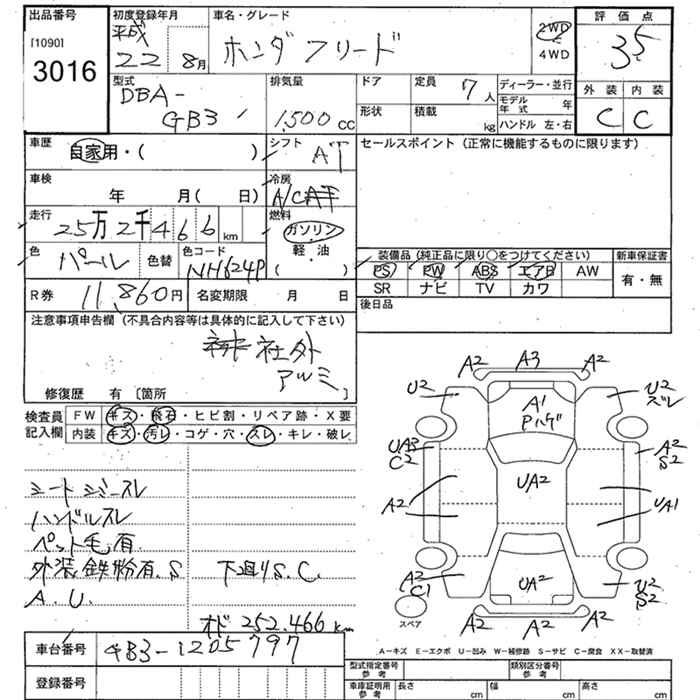 出品番号 初度登録年月 車名・グレード 評価点
[1090] 3016
平成 22年 8月
ホンダ フリード
2WD ・ 4WD
3.5
型式 排気量 ドア 定員 7人 ディーラー・並行 外装 内装
DBA-GB3 1,500 cc
形状 積載 kg モデル年式 年
ハンドル 左・右
C C
車歴 自家用・( ) シフト AT
セールスポイント (正常に機能するものに限ります)
車検 年 月( 日) 冷房 A/C
走行 25万2千466 km 燃料 ガソリン・軽・油 ( )
色 パール 色替 色コード NH624P
装備品 (純正品に限り○をつけてください) 新車保証書
PS PW ABS エアB AW 有・無
SR ナビ TV カワ
R券 11,860円 名変期限 月 日
後日品
注意事項申告欄 (不具合内容等は具体的に記入して下さい)
社外
アルミ
修復歴 有 〔箇所 〕
検査員記入欄
FW キズ・飛石・ヒビ割・リペア跡・X要
内装 キズ・汚レ・コゲ・穴・スレ・キレ・破レ
シートシミ・スレ
ハンドルスレ
ペット毛有
外装鉄粉有.S 下廻りS.C.
A.U.
オド 252.466km
A2 A3 A2
U2 A1 U2
Pハゲ ズレ
UA3 A2
C2 S2
UA2
A2 UA1
A2 U2
C1 UA2 S2
スペア A2 A2 A2
A-キズ E-エクボ U-凹み W-補修跡 S-サビ C-腐食 XX-取替済
車台番号 GB3-1205797
登録番号
型式指定番号 参考 類別区分番号 参考
車庫証明用 参考 長さ cm 幅 cm 高さ cm